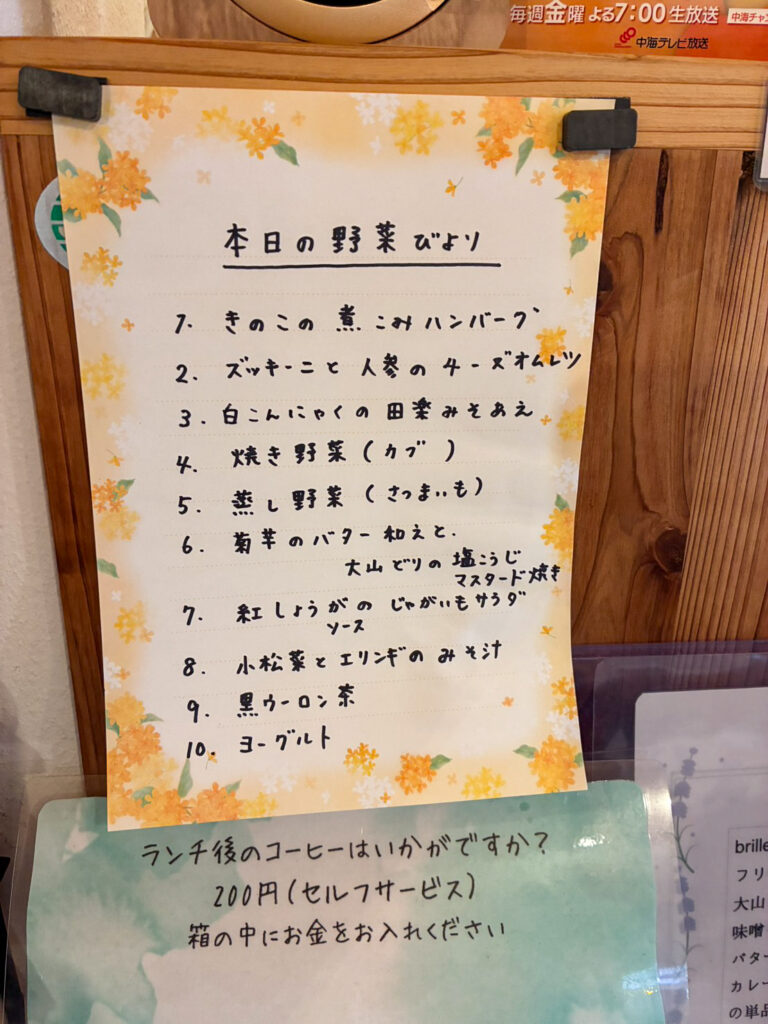 毎週金曜 よる7:00生放送
中海チャン
中海テレビ放送
本日の野菜びより
1. きのこの煮こみハンバーグ
2. ズッキーニと人参のチーズオムレツ
3. 白こんにゃくの田楽みそあえ
4. 焼き野菜(カブ)
5. 蒸し野菜(さつまいも)
6. 菊芋のバター和えと、
大山どりの塩こうじ
マスタード焼き
7. 紅しょうがのじゃがいもサラダ
ソース
8. 小松菜とエリンギのみそ汁
9. 黒ウーロン茶
10. ヨーグルト
ランチ後のコーヒーはいかがですか?
200円(セルフサービス)
箱の中にお金をお入れください
brille
フリ
大山
味噌
バター
カレー
の単品